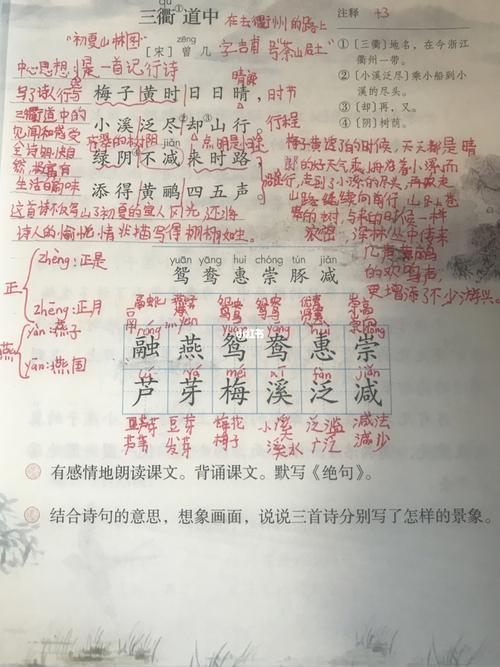 qú
三衢①道中 在去衢州的路上
注释 +3
"初夏山林图"
zēng
[宋]曾几 字吉甫 号"茶山居士"
①[三衢]地名，在今浙江
衢州一带。
中心思想：是一首记行诗
晴朗
②[小溪泛尽]乘小船到小
溪的尽头。
写了诗人行写
梅子黄时日日晴， 时节
③[却]再，又。
三衢道中的
小溪泛尽②却③山行 行程
④[阴]树荫。
见闻和感受
绿阴④不减来时路
梅子黄透的时候，天天都是晴
全诗明快自
朗的好天气
然
生活韵味
添得黄鹂四五声
这首诗不仅写出了初夏的宜人风光，还将
诗人的愉悦情状描写得栩栩如生。
山路继续向前行
与来时候一样
浓密，深林丛中传来
几声黄鹂
的欢鸣声
更增添了不少游兴
yuān yāng huì chóng tún jiǎn
鸳 鸯 惠 崇 豚 减
正
zhèng：正是
zhēng：正月
燕
yàn：燕子
yān：燕国
róng yàn yuān yāng huì chóng
融 燕 鸳 鸯 惠 崇
lú yá méi xī fàn jiǎn
芦 芽 梅 溪 泛 减
豆芽 梅花 小溪 泛滥 减法
发芽 梅子 溪水 广泛 减少
小红书
有感情地朗读课文。背诵课文。默写《绝句》。
结合诗句的意思，想象画面，说说三首诗分别写了怎样的景象。